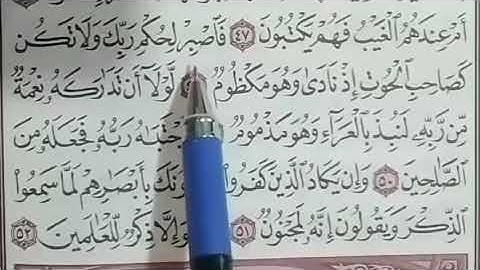 أَمْ عِندَهُمُ ٱلْغَيْبُ فَهُمْ يَكْتُبُونَ ٤٧ فَٱصْبِرْ لِحُكْمِ رَبِّكَ وَلَا تَكُن
كَصَاحِبِ ٱلْحُوتِ إِذْ نَادَىٰ وَهُوَ مَكْظُومٌ لَّوْلَآ أَن تَدَٰرَكَهُۥ نِعْمَةٌ
مِّن رَّبِّهِۦ لَنُبِذَ بِٱلْعَرَآءِ وَهُوَ مَذْمُومٌ رَبُّهُۥ فَجَعَلَهُۥ مِنَ
ٱلصَّٰلِحِينَ ٥٠ وَإِن يَكَادُ ٱلَّذِينَ كَفَرُوا۟ بِأَبْصَٰرِهِمْ لَمَّا سَمِعُوا۟
ٱلذِّكْرَ وَيَقُولُونَ إِنَّهُۥ لَمَجْنُونٌ ٥١ إِلَّا ذِكْرٌ لِّلْعَٰلَمِينَ ٥٢